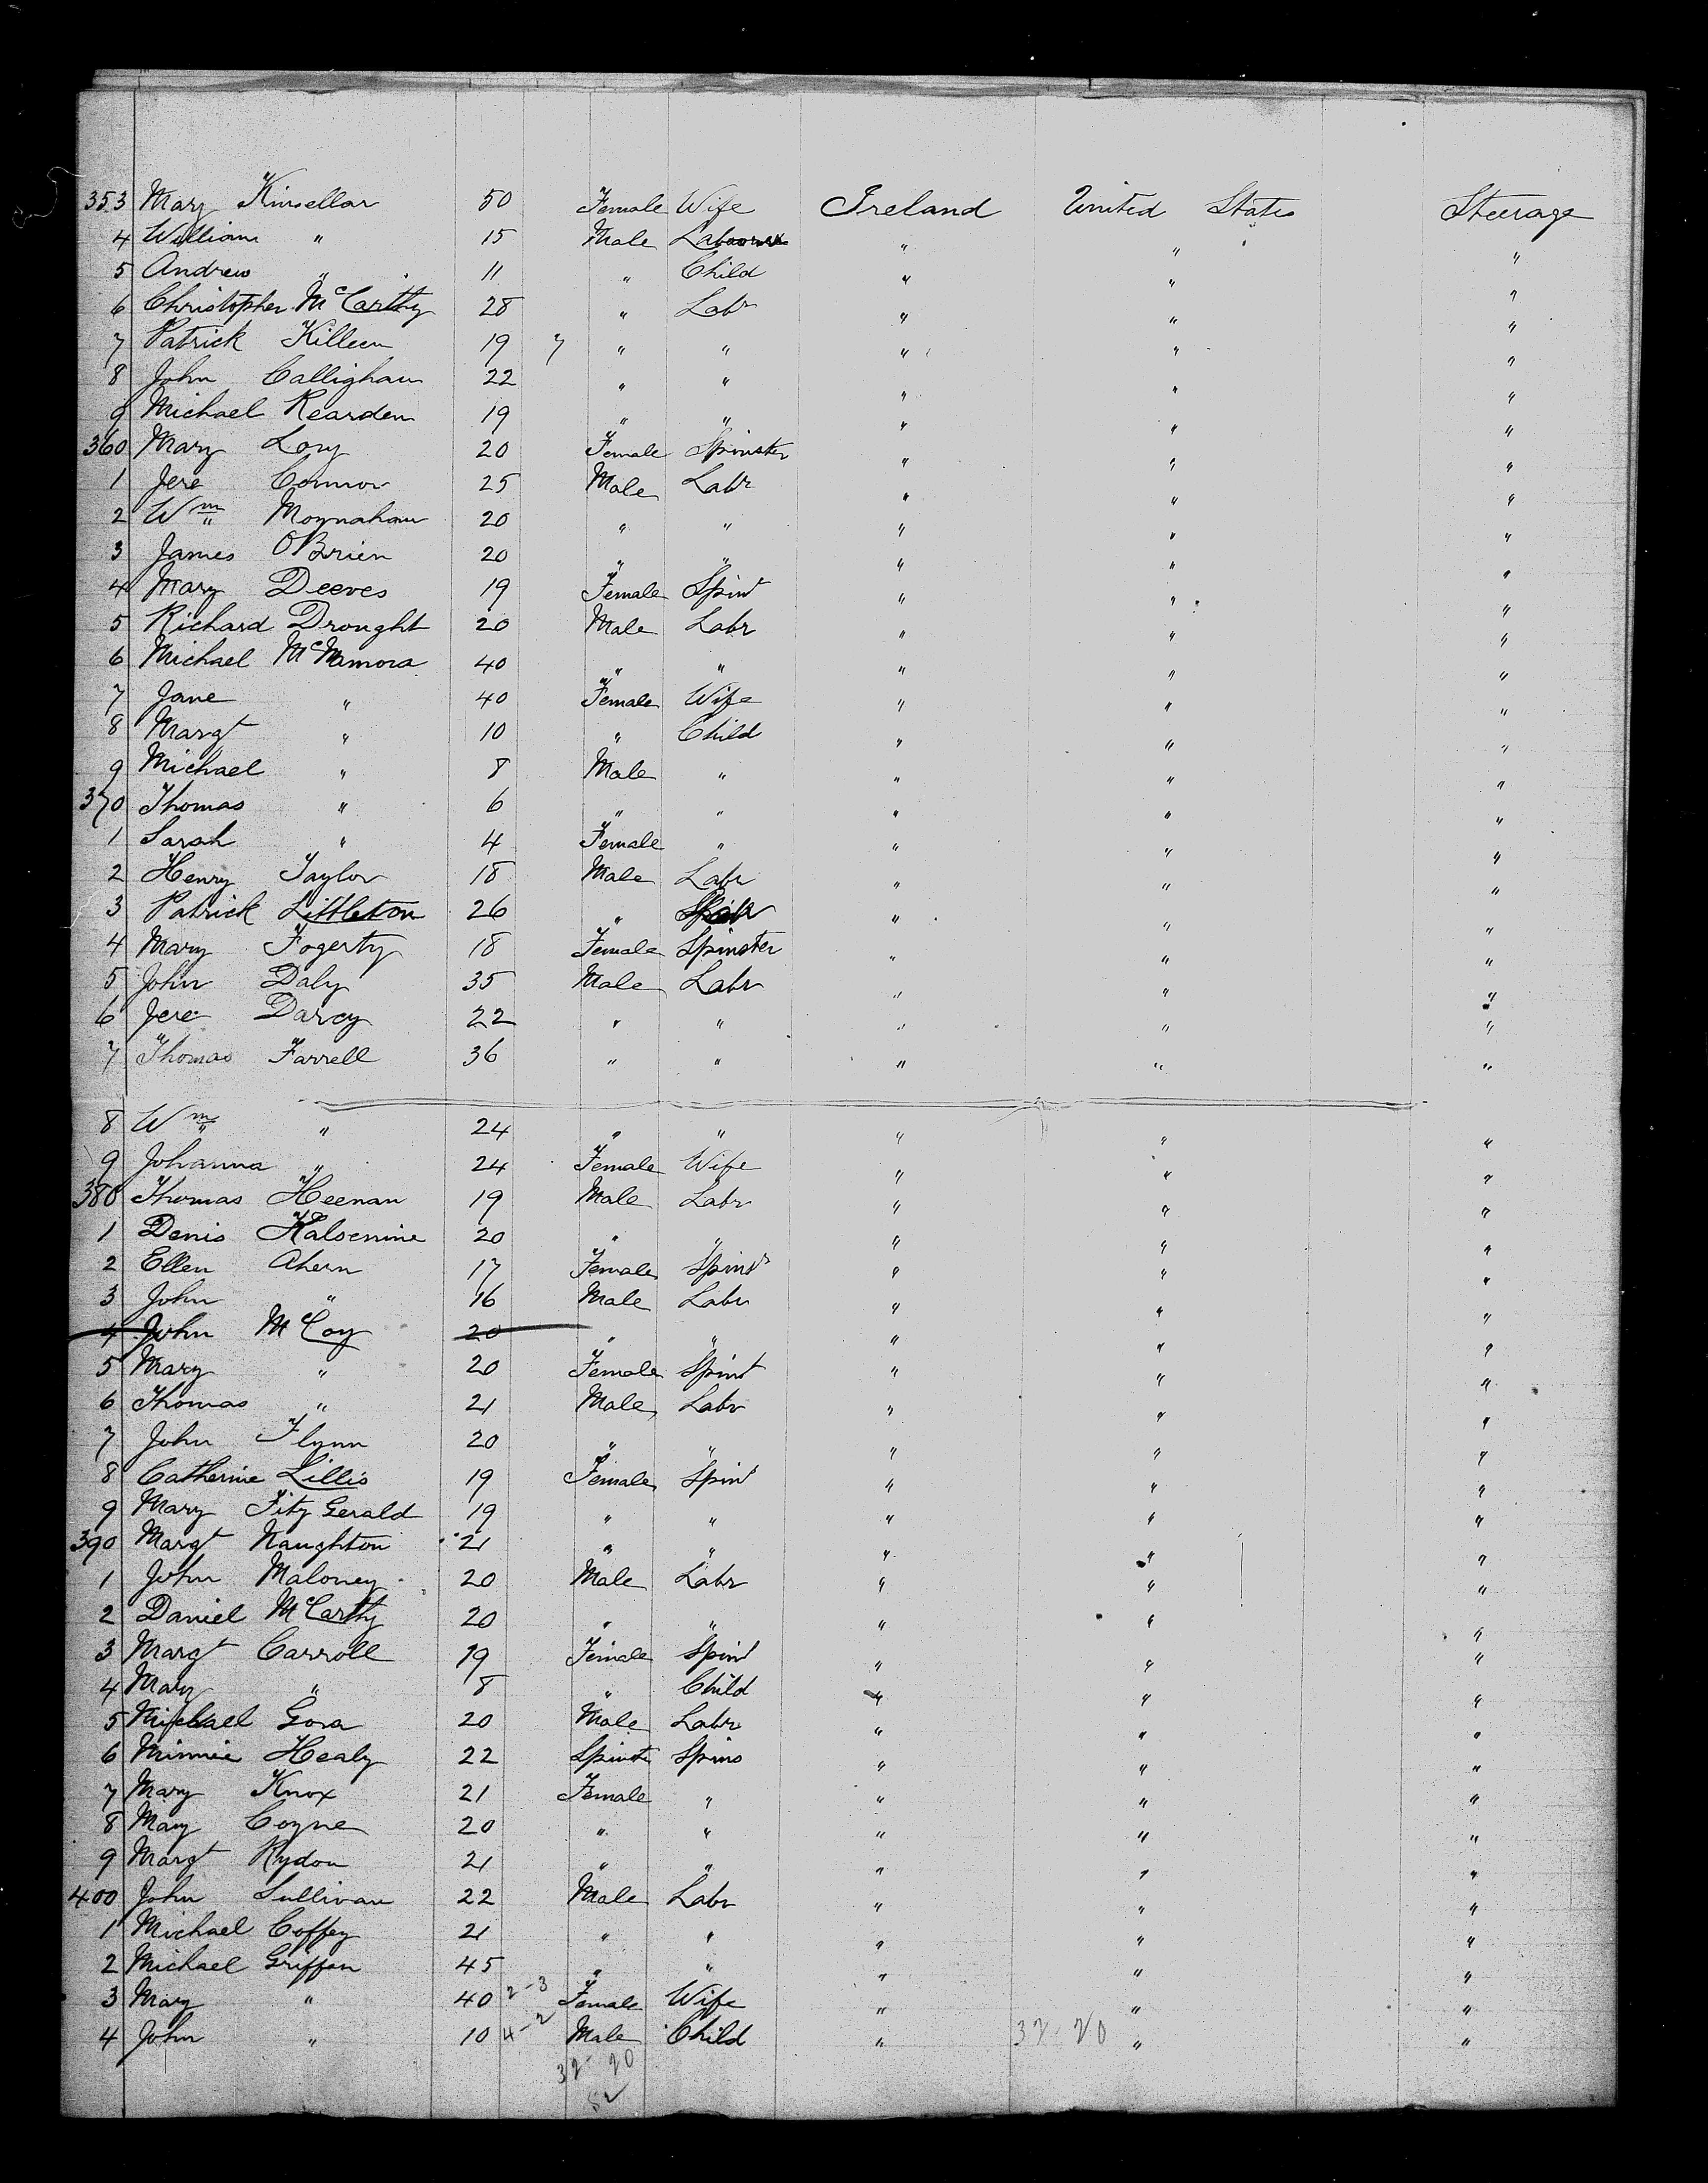 353 Mary Kinsellar 50 Female Wife Ireland United States Steerage
4 William " 15 Male Labourer " " "
5 Andrew " 11 " Child " " "
6 Christopher McCarthy 28 " Labr " " "
7 Patrick Killeen 19 " " " " "
8 John Callighan 22 " " " " "
9 Michael Rearden 19 " " " " "
360 Mary Lory 20 Female Spinster " " "
1 Jere Connor 25 Male Labr " " "
2 Wm Moynahan 20 " " " " "
3 James OBrien 20 " " " " "
4 Mary Deeves 19 Female Spinst " " "
5 Richard Drought 20 Male Labr " " "
6 Michael McNamora 40 " " " " "
7 Jane " 40 Female Wife " " "
8 Margt " 10 " Child " " "
9 Michael " 8 Male " " " "
370 Thomas " 6 " " " " "
1 Sarah " 4 Female " " " "
2 Henry Taylor 18 Male Labr " " "
3 Patrick Littleton 26 " " " "
4 Mary Fogerty 18 Female Spinster " " "
5 John Daly 35 Male Labr " " "
6 Jere Darcy 22 " " " " "
7 Thomas Farrell 36 " " " " "
8 Wm " 24 " " " " "
9 Johanna " 24 Female Wife " " "
380 Thomas Heenan 19 Male Labr " " "
1 Denis 20 " " " " "
2 Ellen Ahern 17 Female Spinst " " "
3 John " 16 Male Labr " " "
4 John McCoy 20 " " " " "
5 Mary " 20 Female Spinst " " "
6 Thomas " 21 Male Labr " " "
7 John Flynn 20 " " " " "
8 Catherine Lillis 19 Female Spinst " " "
9 Mary Fitz Gerald 19 " " " " "
390 Margt Naughton 21 " " " " "
1 John Maloney 20 Male Labr " " "
2 Daniel McCarthy 20 " " " " "
3 Margt Carroll 19 Female Spinst " " "
4 Mary " 8 " Child " " "
5 Michael Gora 20 Male Labr " " "
6 Minnie Healy 22 Spinster Spins " " "
7 Mary Knox 21 Female " " " "
8 Mary Coyne 20 " " " " "
9 Margt Rydon 21 " " " " "
400 John Sullivan 22 Male Labr " " "
1 Michael Coffey 21 " " " " "
2 Michael Griffin 45 " " " " "
3 Mary " 40 2-3 Female Wife " " "
4 John " 10 4-2 Male Child " 32-20 " "
32-20
52